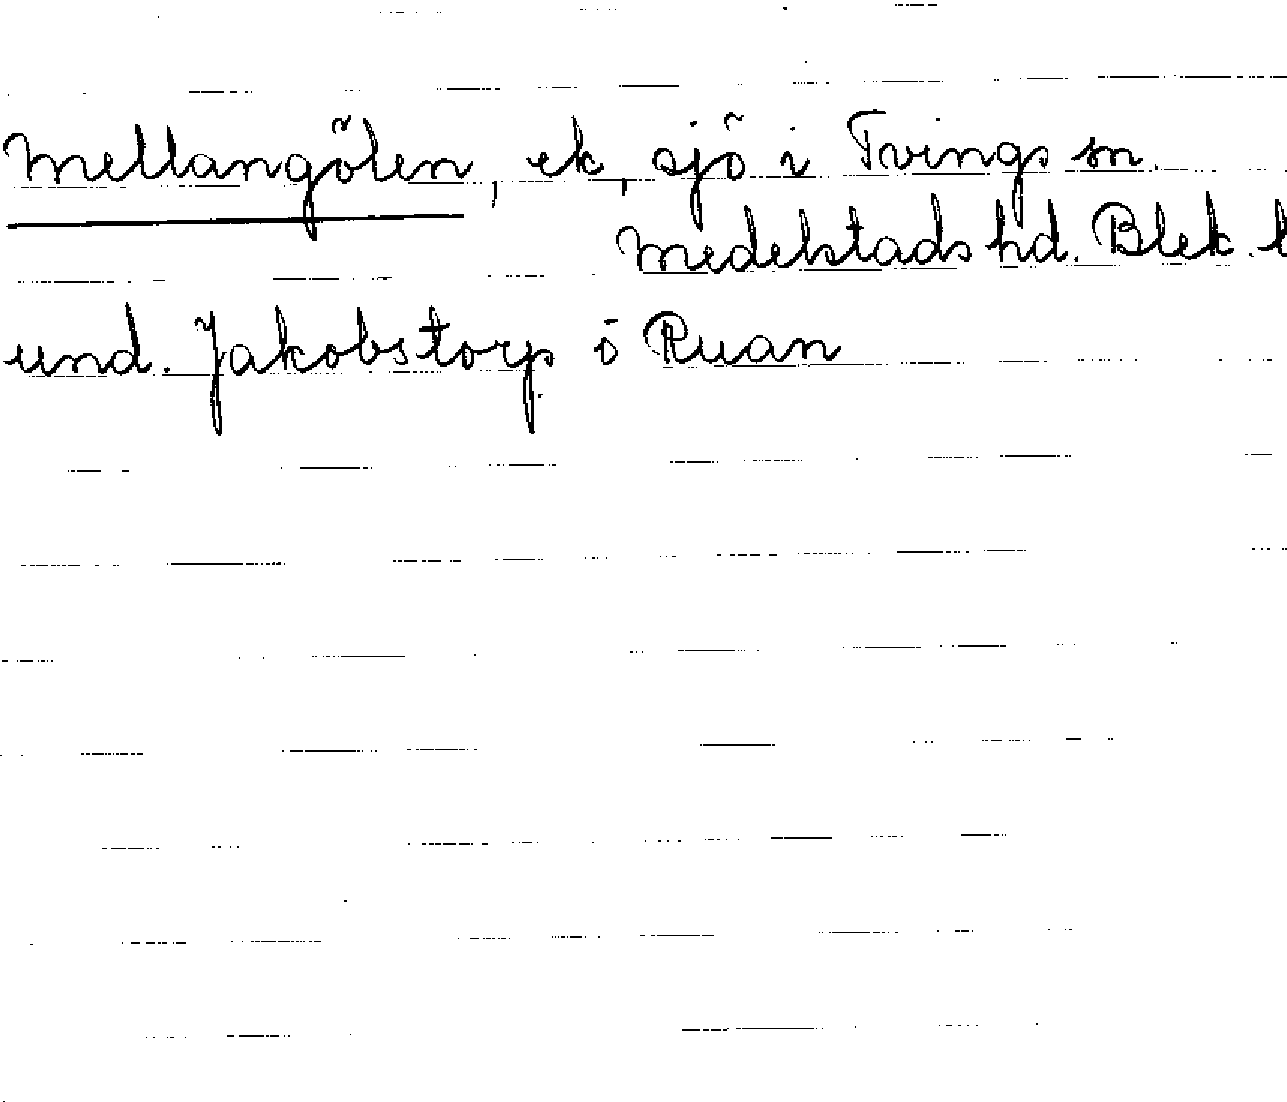 Mellangölen, ek, sjö i Tvings sn.
Medelstads hd. Blek. l
und. Jakobstorp ö Ruan